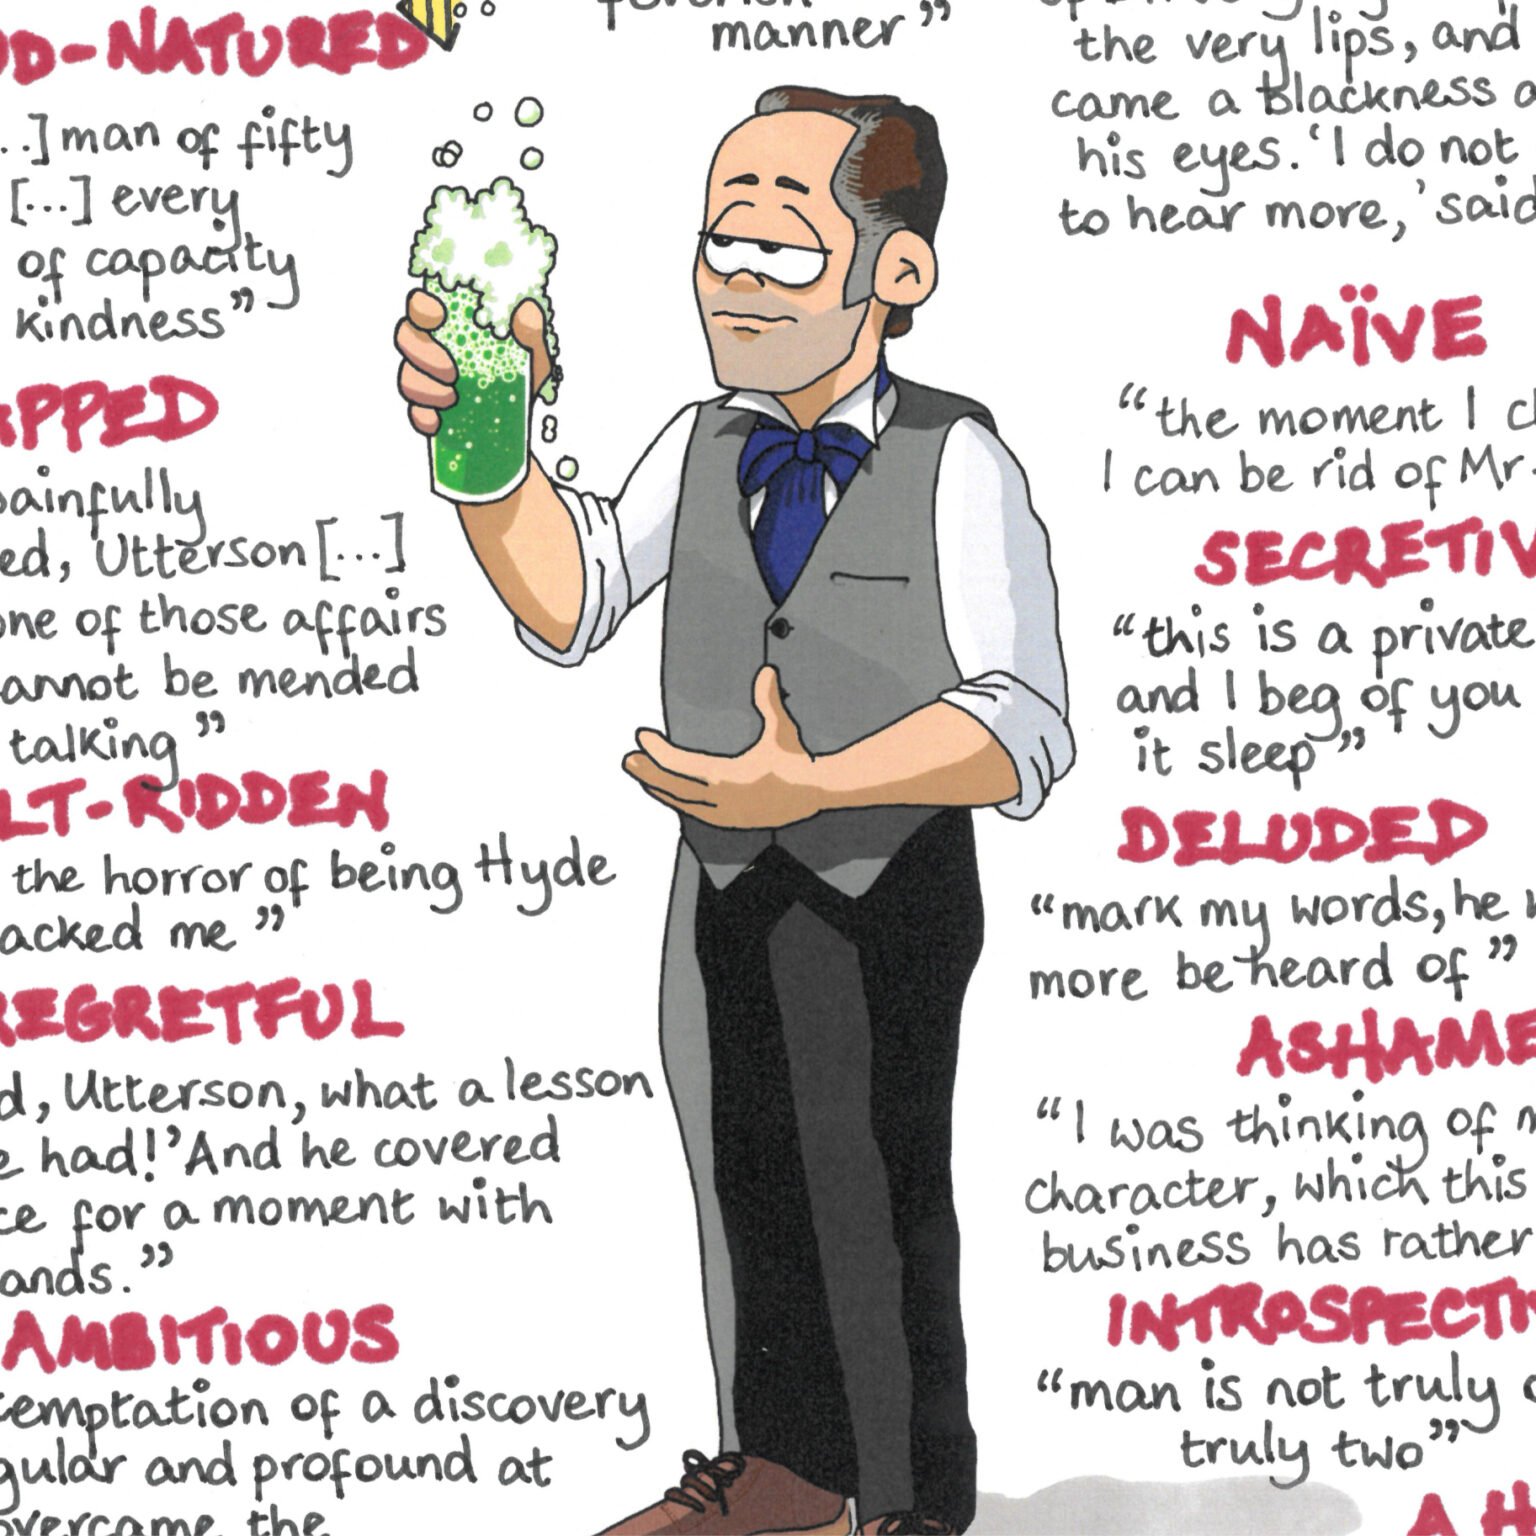 OD-NATURED
...] man of fifty
[...] every
of capacity
kindness"
APPED
painfully
ed, Utterson [...]
one of those affairs
cannot be mended
talking"
LT-RIDDEN
the horror of being Hyde
acked me"
REGRETFUL
d, Utterson, what a lesson
e had!' And he covered
ce for a moment with
ands."
AMBITIOUS
temptation of a discovery
gular and profound at
overcame the
manner"
the very lips, and
came a blackness a
his eyes. 'I do not
to hear more,' said
NAÏVE
"the moment I c
I can be rid of Mr.
SECRETIV
"this is a private
and I beg of you
it sleep"
DELUDED
"mark my words, he w
more be heard of"
ASHAME
"I was thinking of m
character, which this
business has rather
INTROSPECTI
"man is not truly o
truly two"